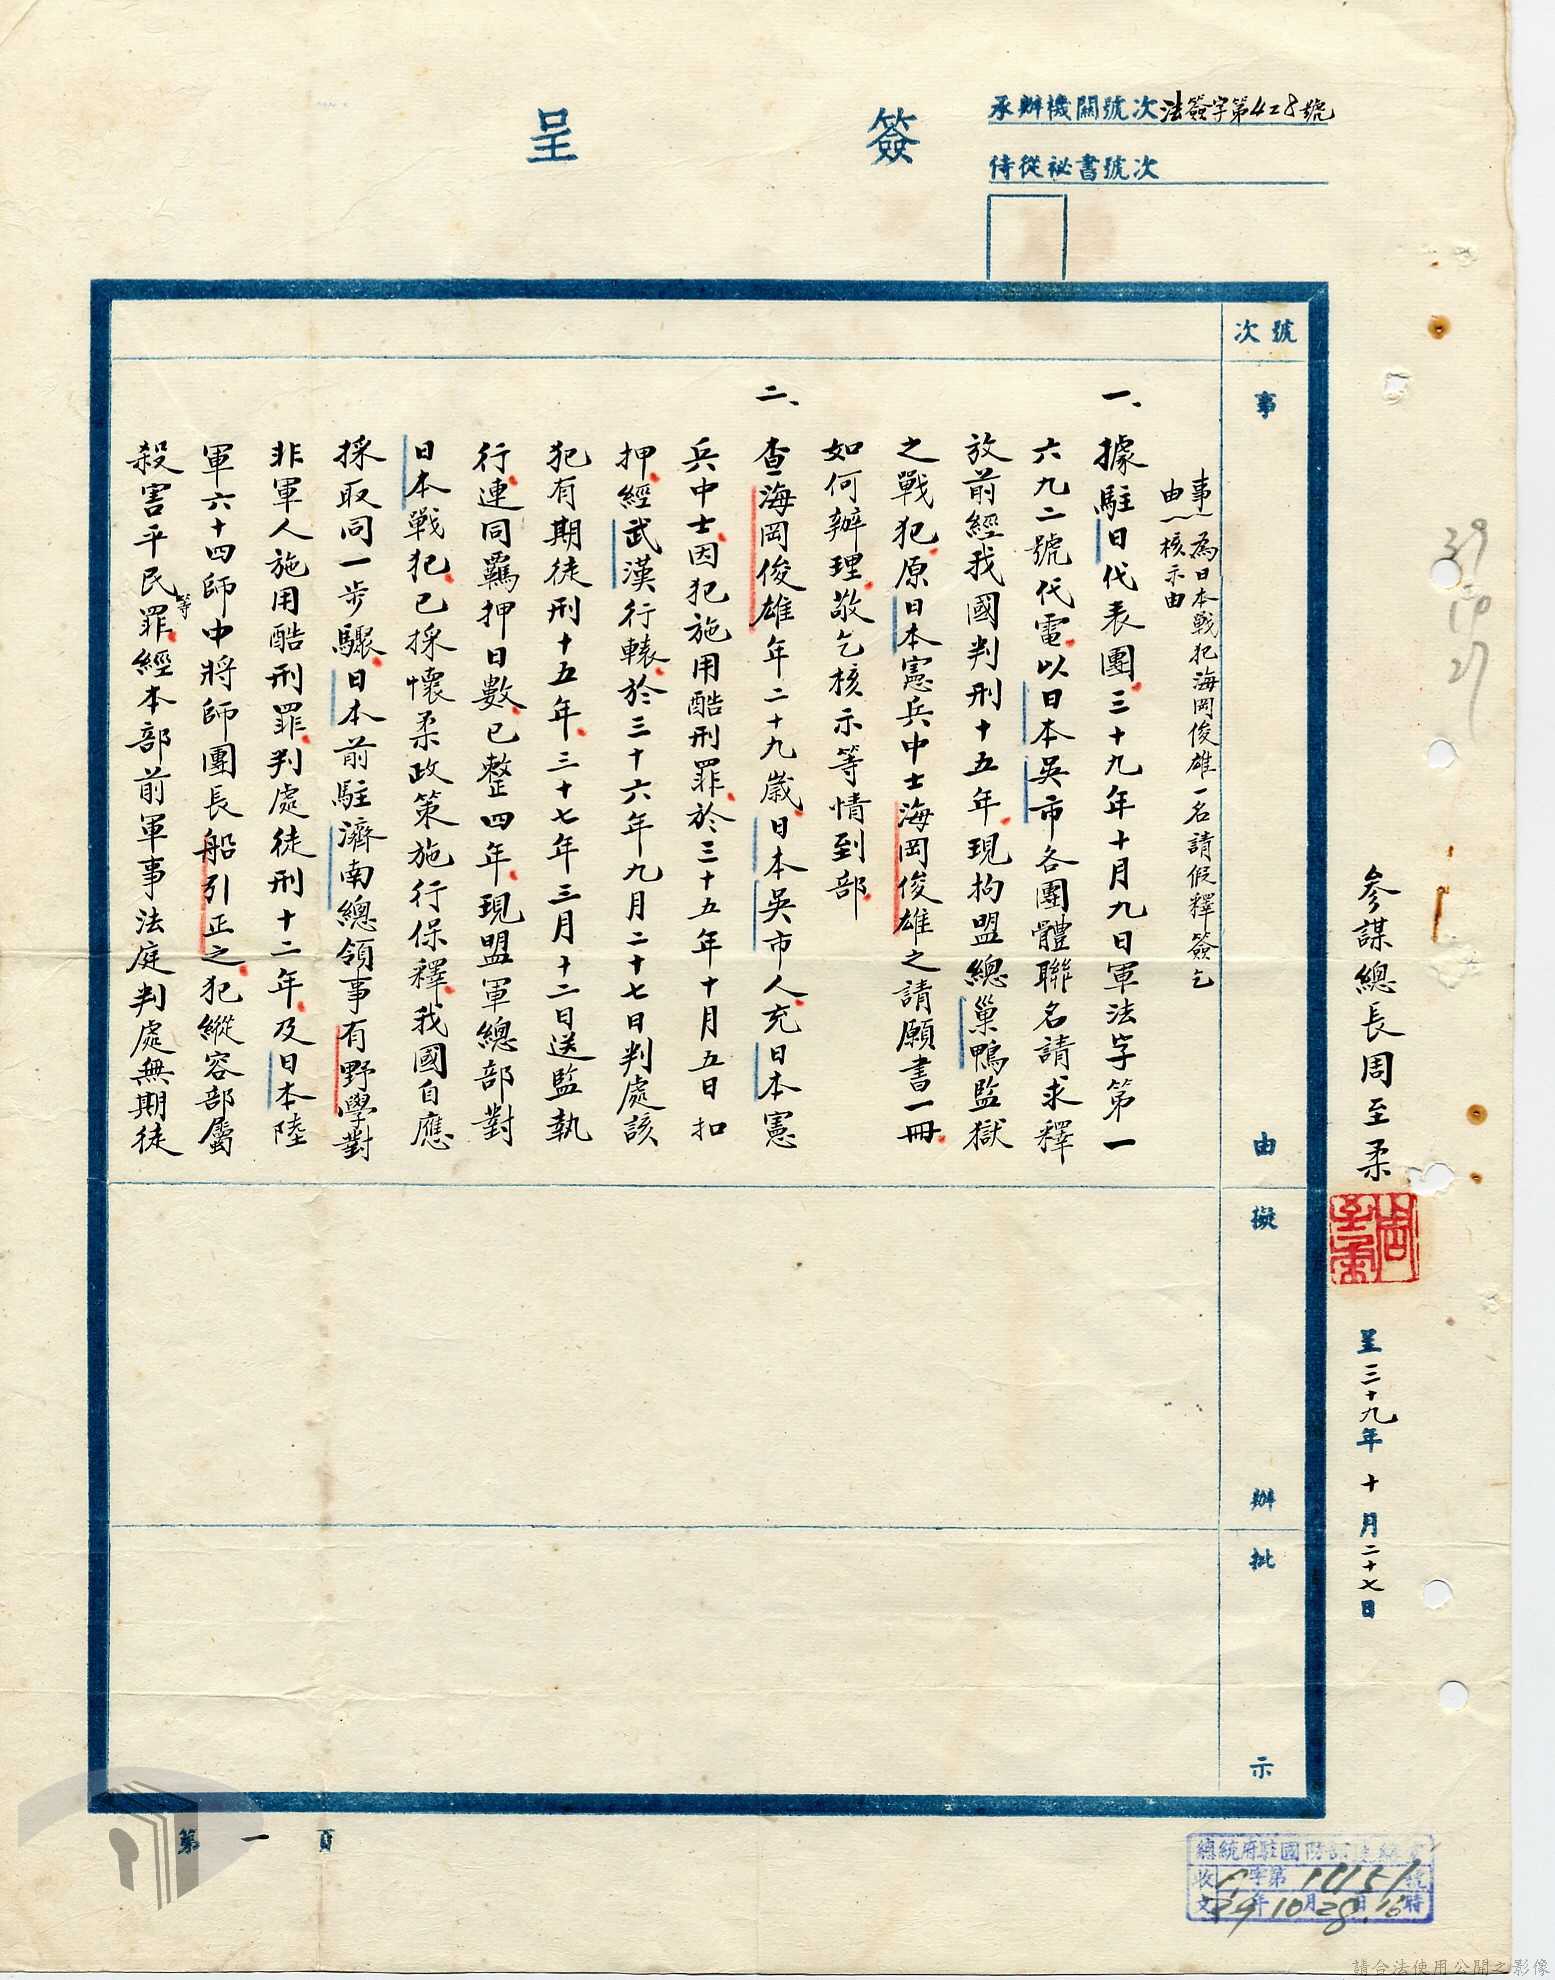 簽呈
承辦機關號次法簽字第428號
侍從祕書號次
參謀總長周至柔
周至柔
呈三十九年十月二十七日
39
10
27
號次
事由
擬辦
批示
事由︵為日本戰犯海岡俊雄一名請假釋簽乞
核示由
一、據駐日代表團三十九年十月九日軍法字第一
六九二號代電以日本吳市各團體聯名請求釋
放前經我國判刑十五年現拘盟總巢鴨監獄
之戰犯原日本憲兵中士海岡俊雄之請願書一冊
如何辦理敬乞核示等情到部
二、查海岡俊雄年二十九歲日本吳市人充日本憲
兵中士因犯施用酷刑罪於三十五年十月五日扣
押經武漢行轅於三十六年九月二十七日判處該
犯有期徒刑十五年三十七年三月十二日送監執
行連同羈押日數已整四年現盟軍總部對
日本戰犯已採懷柔政策施行保釋我國自應
採取同一步驟日本前駐濟南總領事有野學對
非軍人施用酷刑罪判處徒刑十二年及日本陸
軍六十四師中將師團長船引正之犯縱容部屬
殺害平民等罪經本部前軍事法庭判處無期徒
第一頁
總統府駐國防部連絡室
收 字第11151號
文39年10月28日16時
請合法使用公開之影像